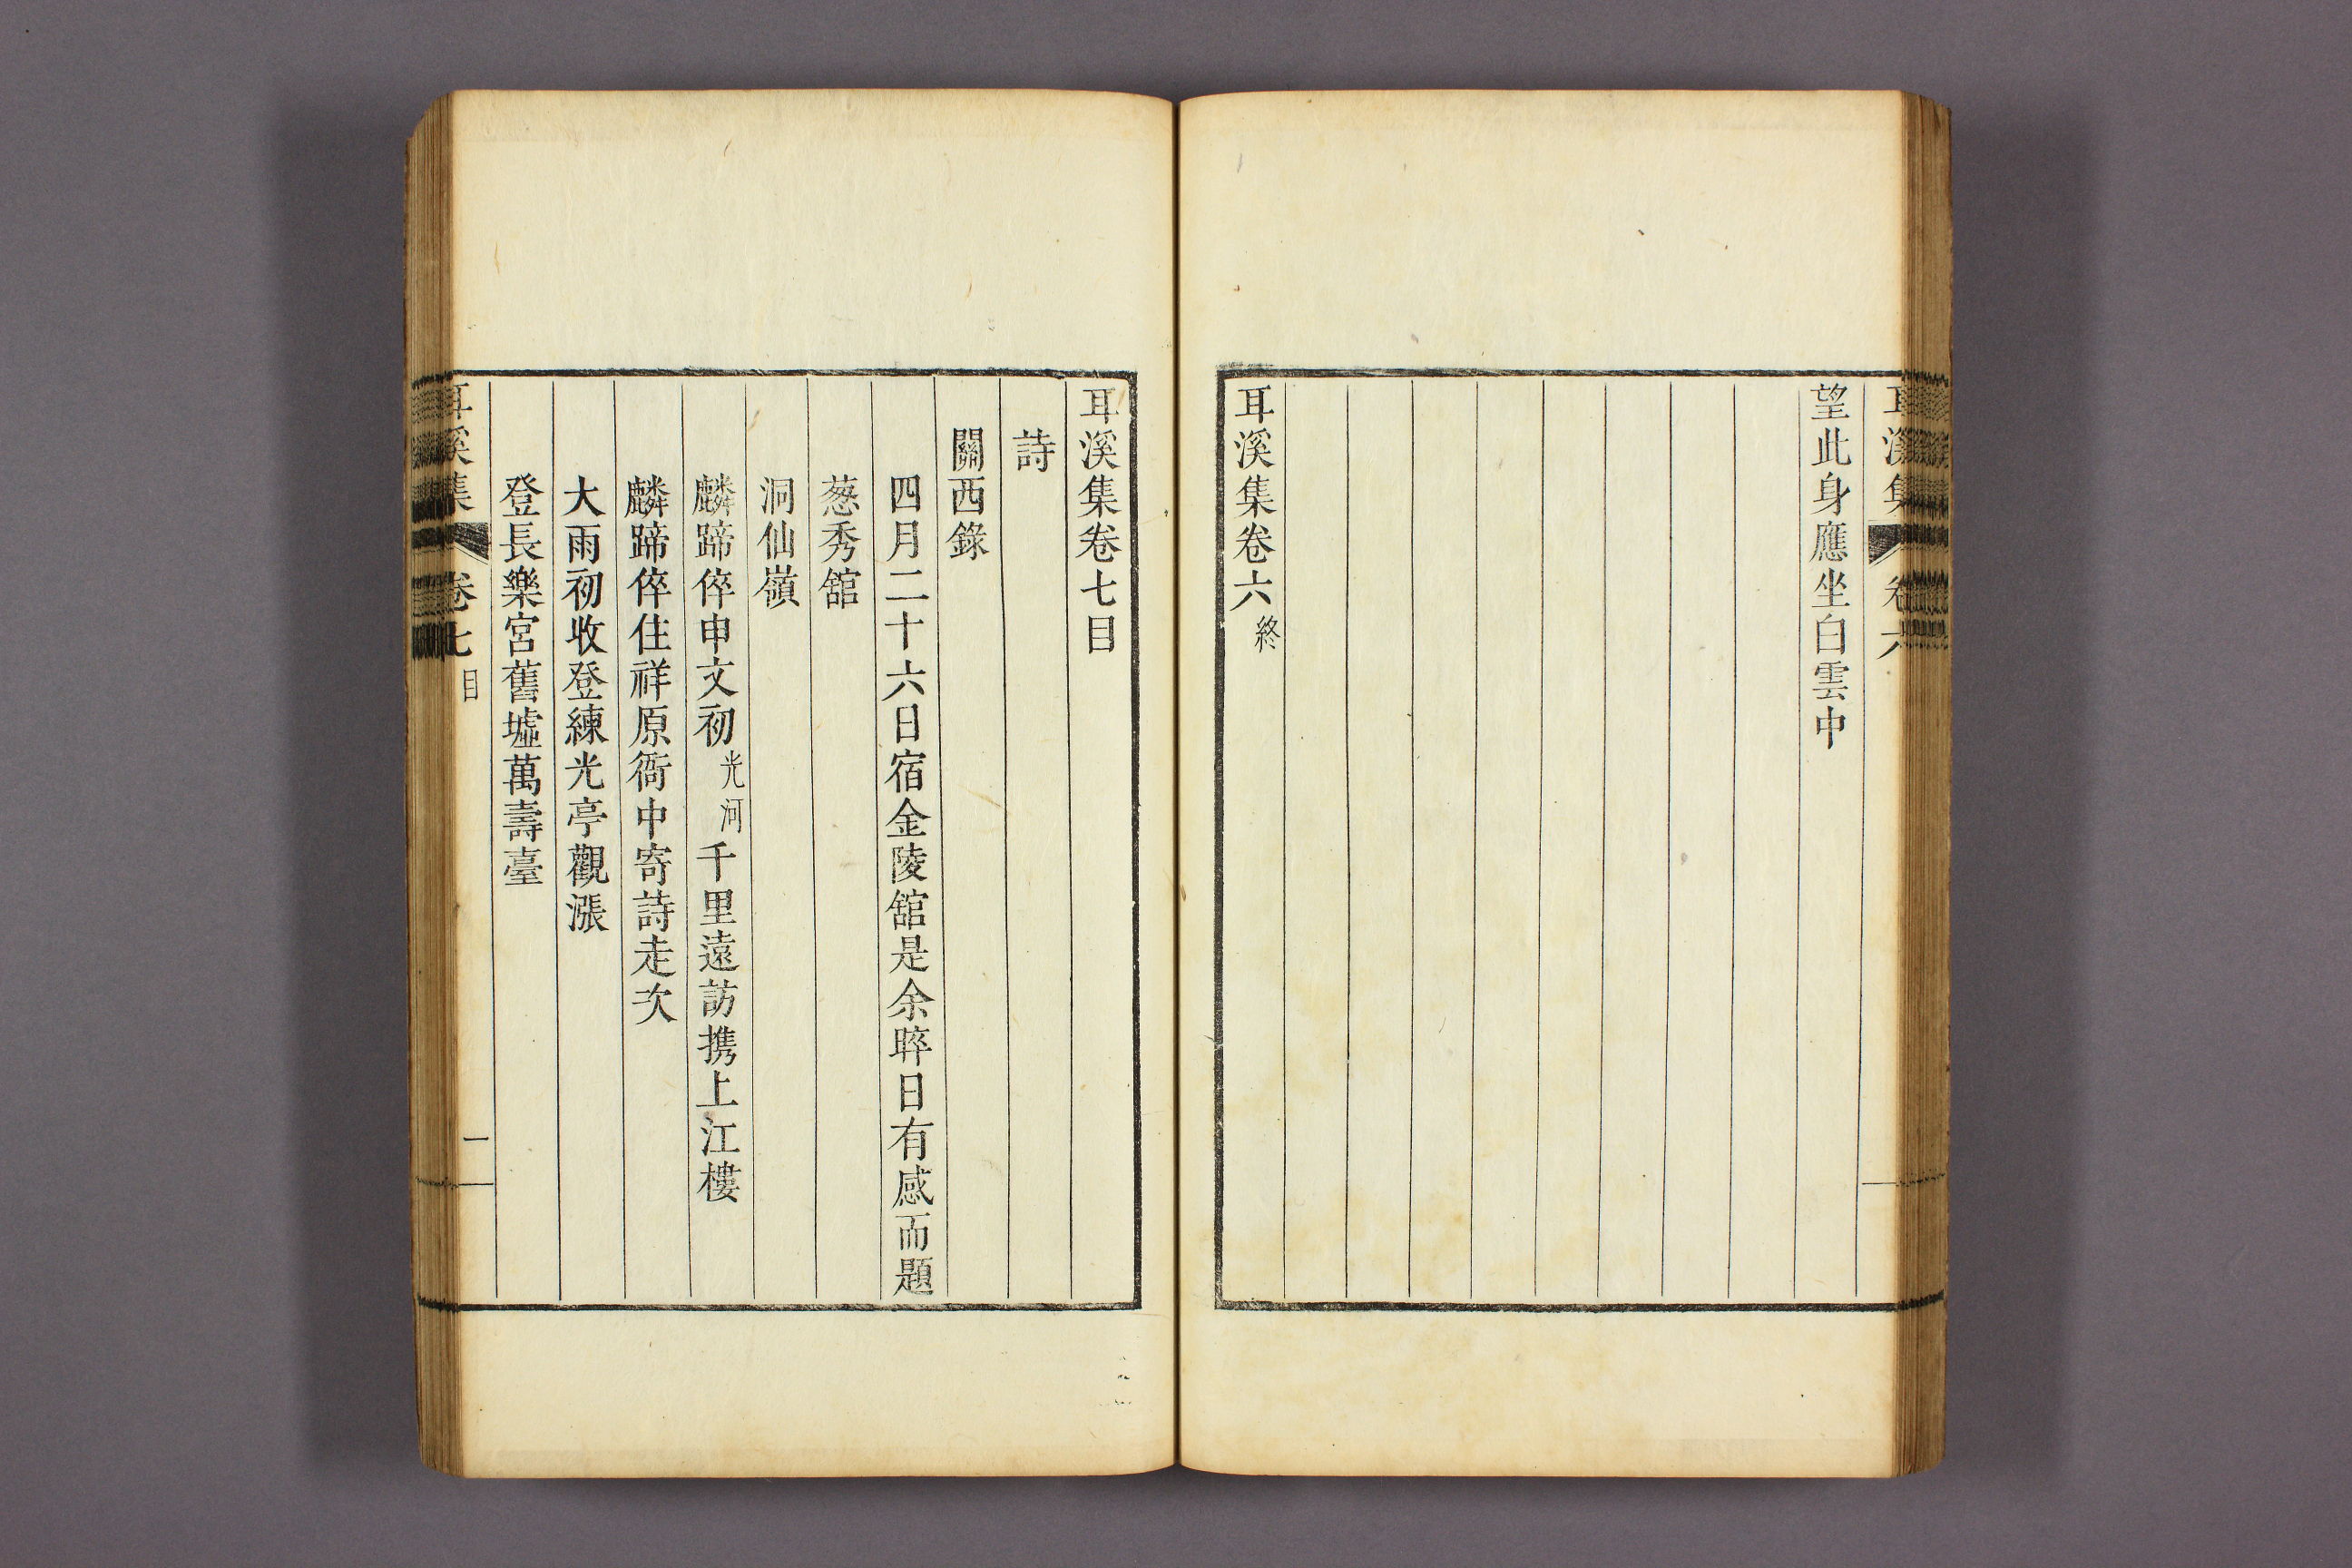 耳溪集 卷六
望此身應坐白雲中
耳溪集卷六 終
耳溪集卷七目
詩
關西錄
四月二十六日宿金陵舘是余晬日有感而題
葱秀舘
洞仙嶺
麟蹄倅申文初 光河 千里遠訪携上江樓
麟蹄倅住祥原衙中寄詩走次
大雨初收登練光亭觀漲
登長樂宮舊墟萬壽臺
耳溪集 卷七 目 一